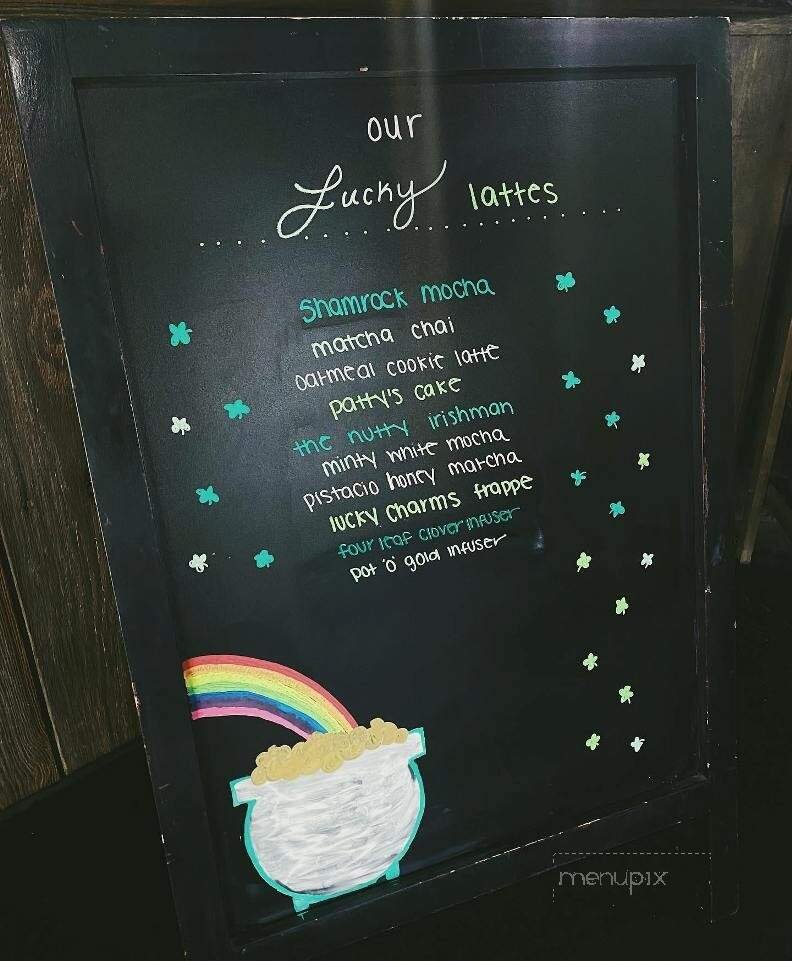 our
Lucky lattes
Shamrock mocha
matcha chai
oatmeal cookie latte
patty's cake
the nutty irishman
minty white mocha
pistacio honey matcha
lucky charms frappe
four leaf clover infuser
pot 'o' gold infuser
menupix